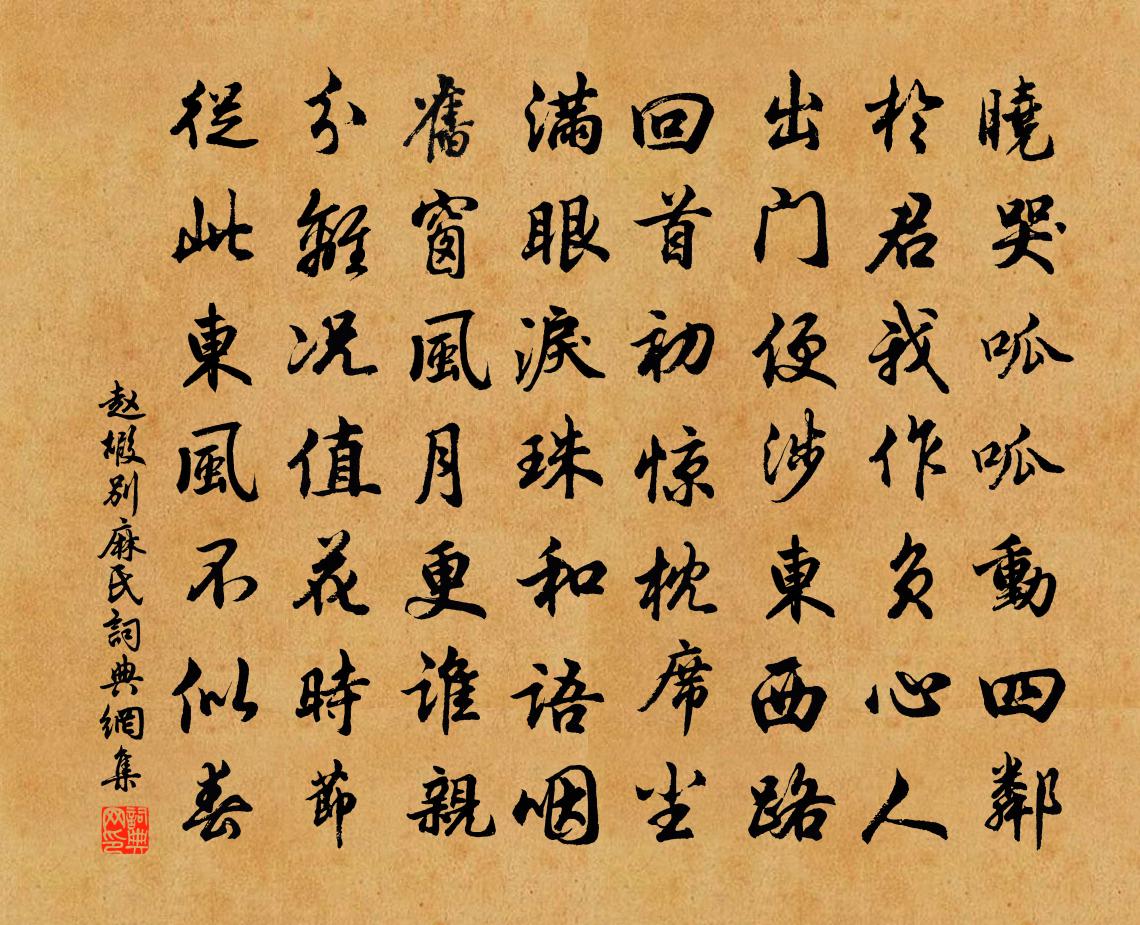 曉哭呱呱動四鄰
於君我作負心人
出门便涉東西路
回首初惊枕席尘
满眼淚珠和語咽
舊窗風月更谁親
分離况值花時節
從此東風不似春
赵嘏别麻氏詞典網集
詞典网印